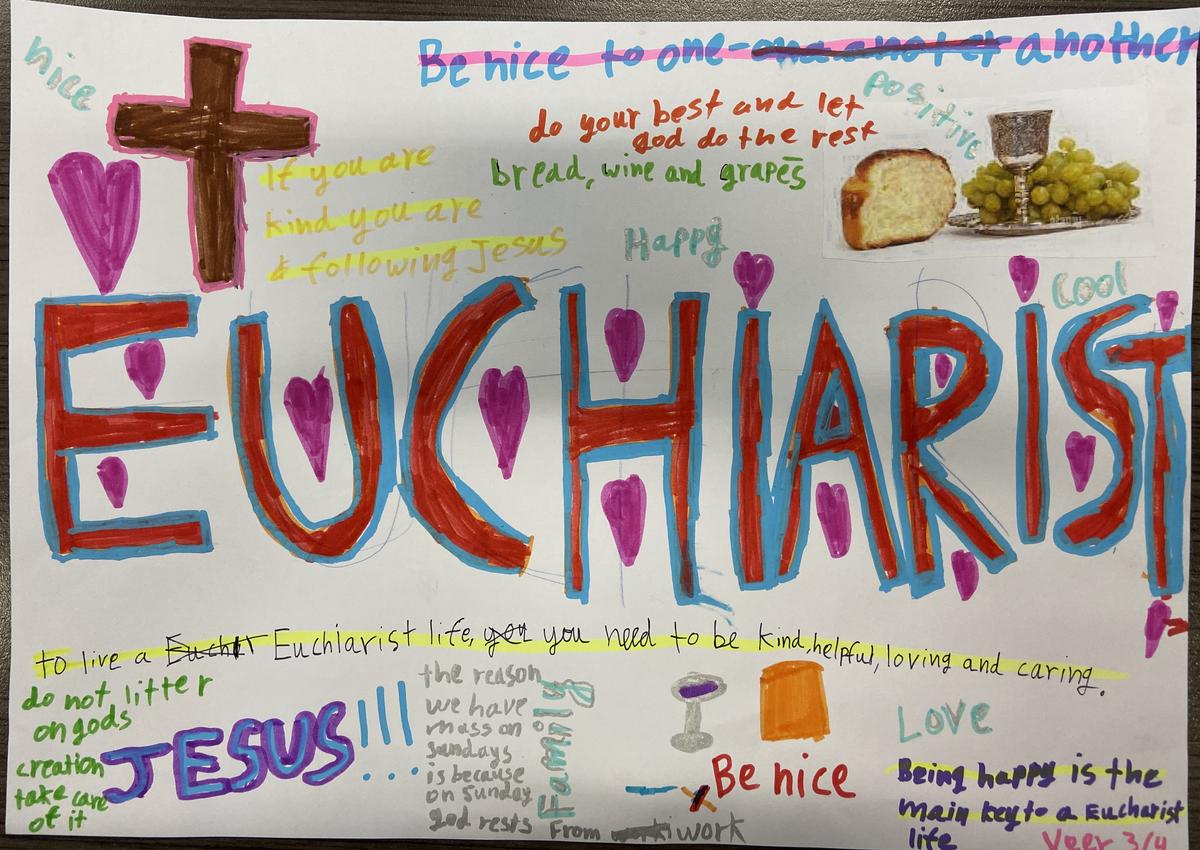 nice
Be nice to one- another
positive
do your best and let
god do the rest
bread, wine and grapes
If you are
kind you are
& following Jesus
Happy
Cool
EUCHIARIST
to live a Euchiarist life, you need to be kind, helpful, loving and caring.
do not litter
on gods
creation
take care
of it
JESUS!!!
the reason
we have
mass on
sundays
is because
on Sunday
god rests
From work
Family
Be nice
LOVE
Being happy is the
main key to a Eucharist
life
Year 3/4